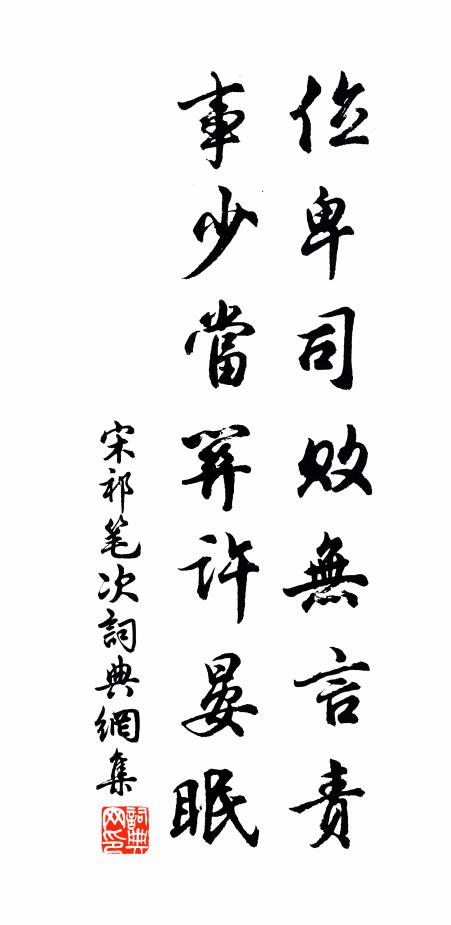 位卑司敗無言責
事少當關許晏眠
宋祁笔次詞典網集
詞典网印